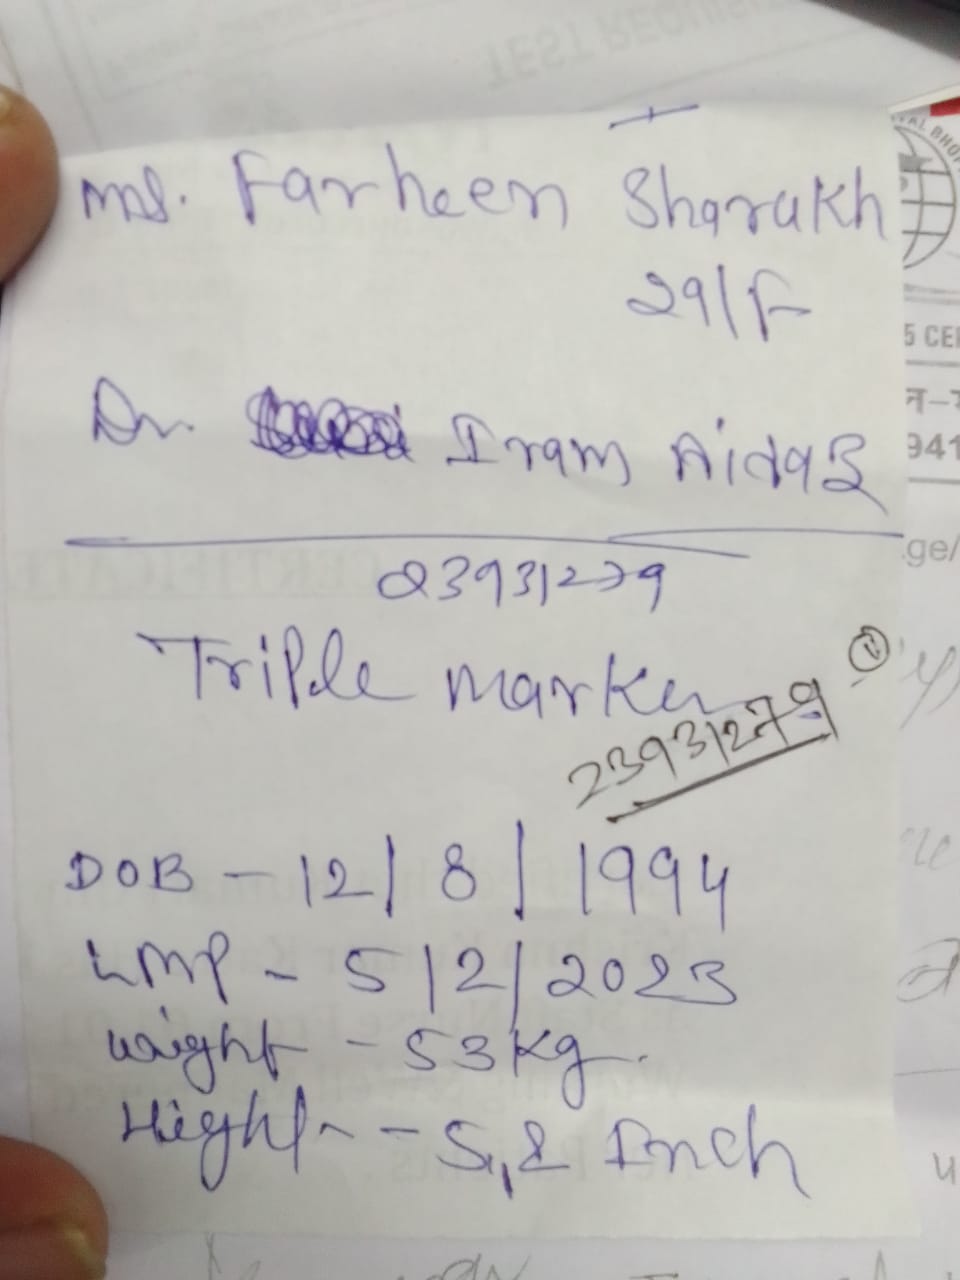 TEST REQUIS
ms. Farheen Sharukh
29/F
Dr. Iram
23931279
Triple marker
23931279
DOB - 12/8/1994
LMP - 5/2/2023
Weight - 53 kg.
Hight - 5,2 Inch
5 CE
941
ge/